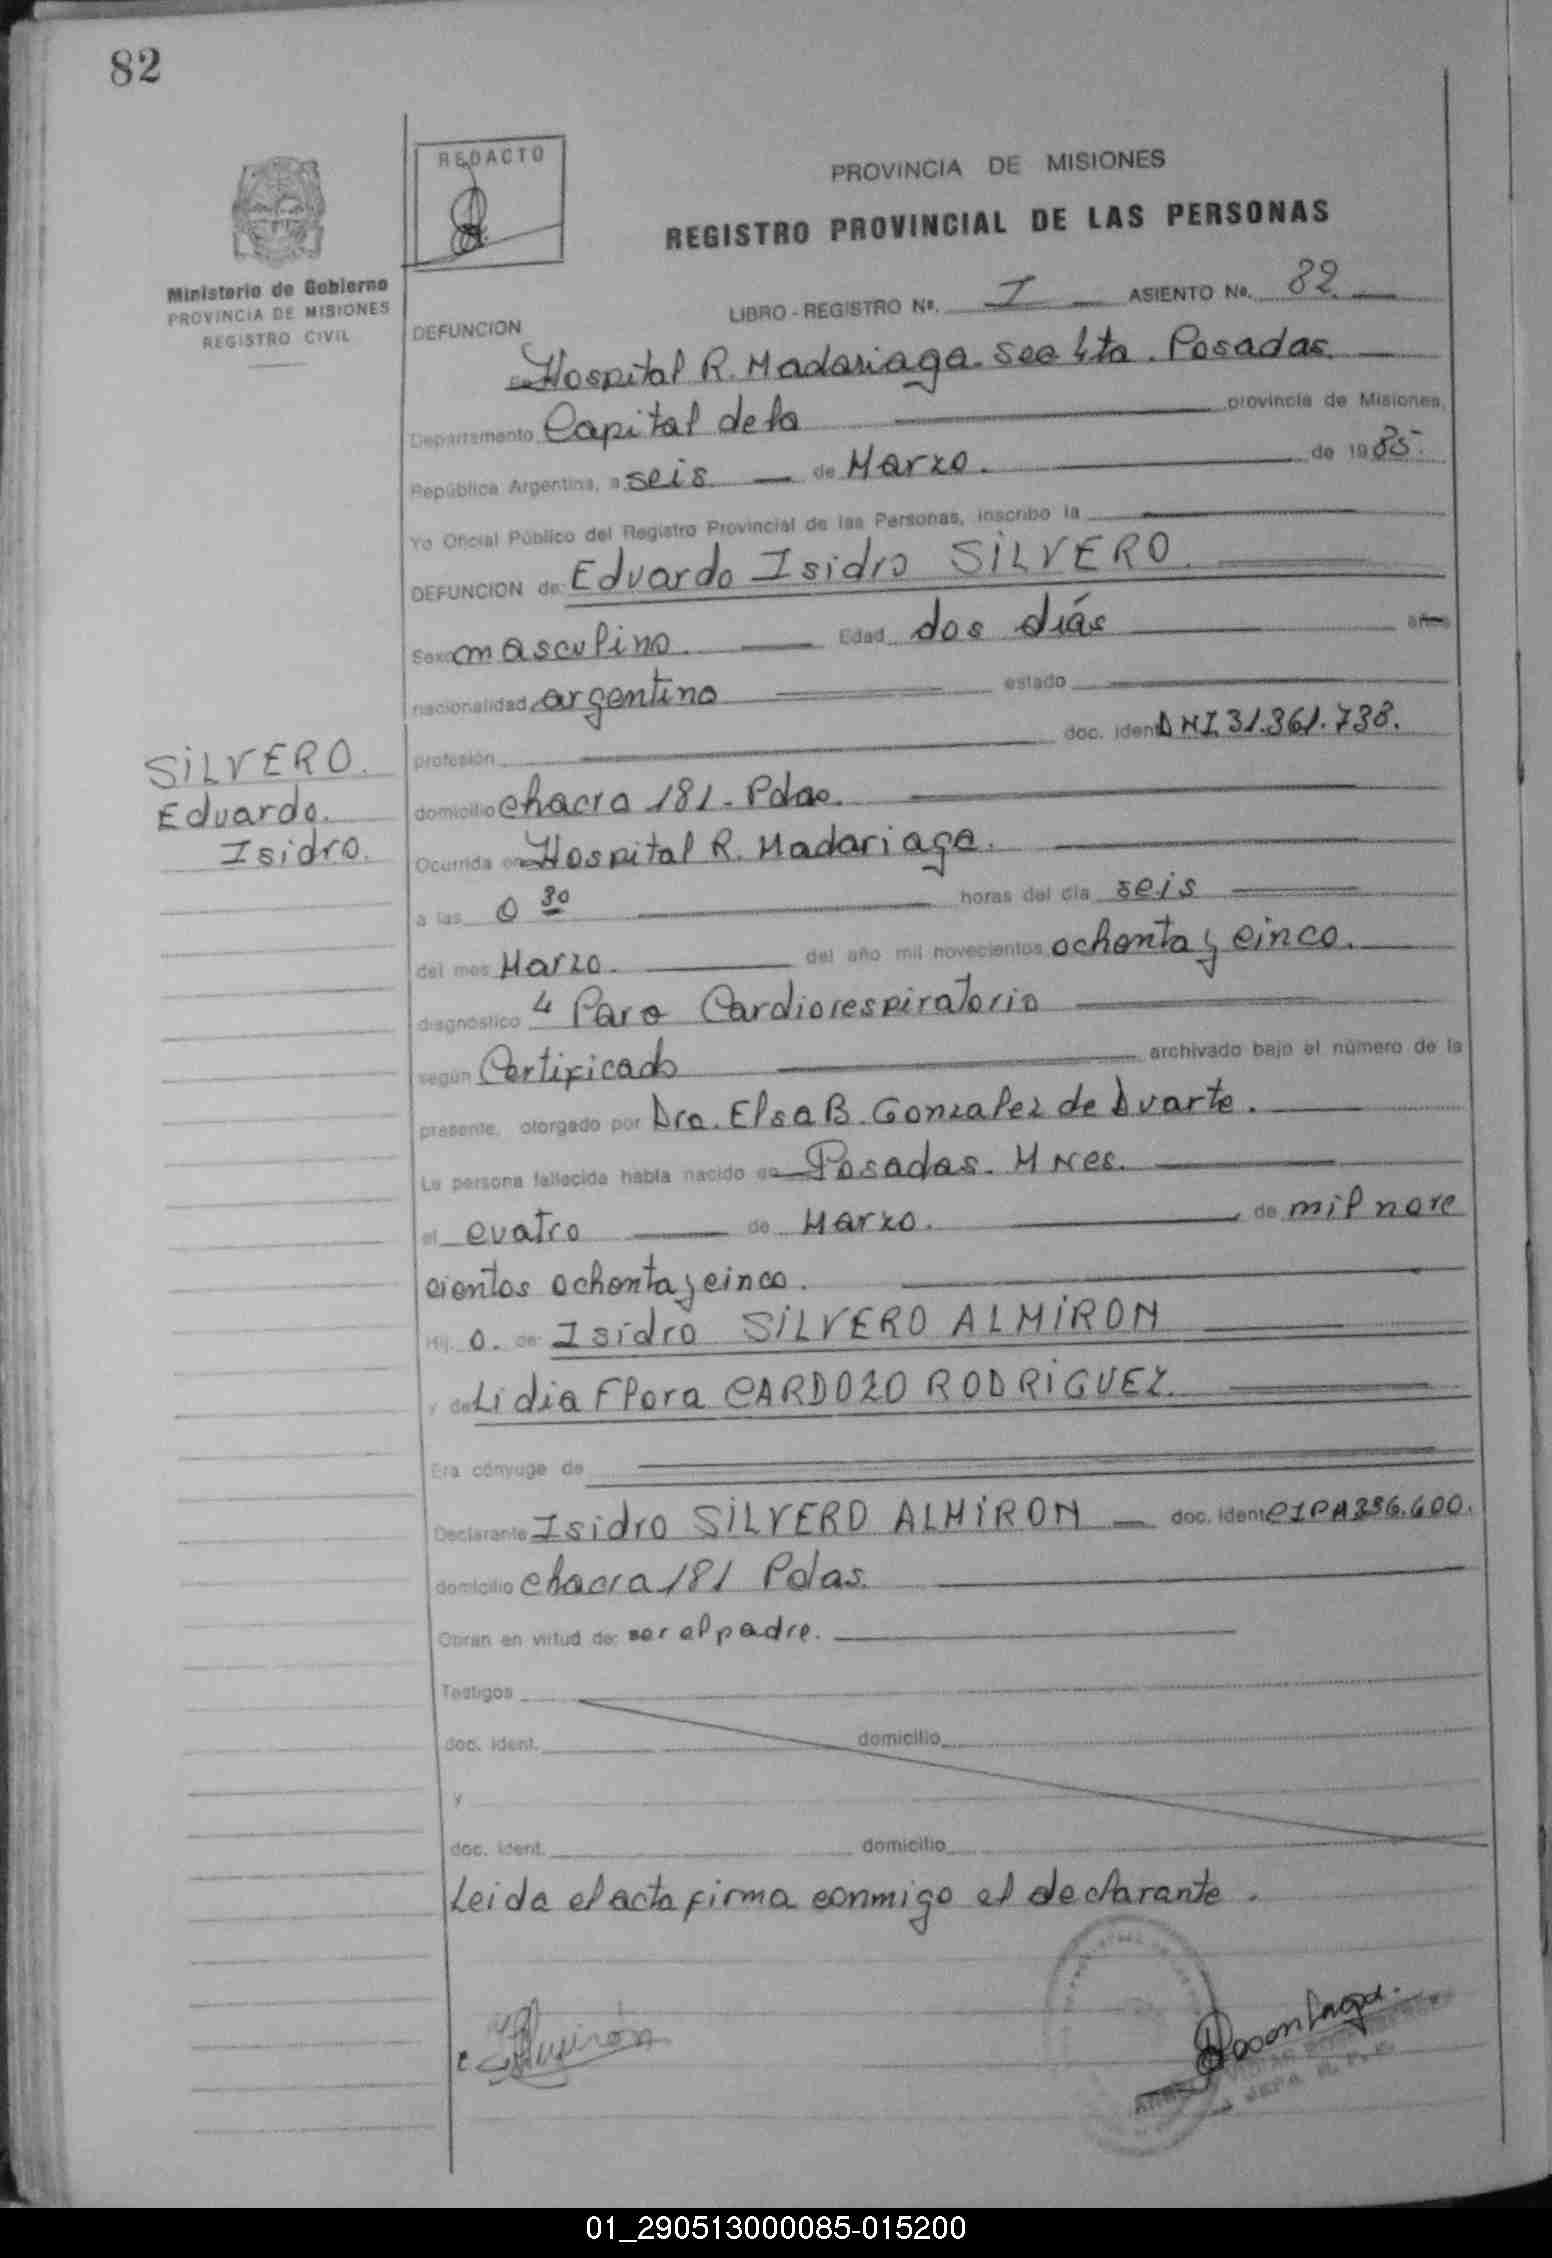 82
REDACTO
PROVINCIA DE MISIONES
REGISTRO PROVINCIAL DE LAS PERSONAS
Ministerio de Gobierno
PROVINCIA DE MISIONES
REGISTRO CIVIL
LIBRO - REGISTRO Nº. I ASIENTO Nº. 82
DEFUNCION
Hospital R. Madariaga. Sec 4ta. Posadas.
Departamento Capital de la provincia de Misiones,
República Argentina, a seis de Marzo. de 1985.
Yo Oficial Público del Registro Provincial de las Personas, inscribo la
DEFUNCION de: Eduardo Isidro SILVERO.
Sexo masculino. Edad dos días años
nacionalidad argentino estado
SILVERO.
Eduardo.
Isidro.
profesión doc. ident DNI 31.361.738.
domicilio chacra 181. Pdas.
Ocurrida en Hospital R. Madariaga.
a las 0 30 horas del día seis
del mes Marzo. del año mil novecientos ochenta y cinco.
diagnóstico Paro Cardiorespiratorio
según Certificado archivado bajo el número de la
presente, otorgado por Dra. Elsa B. Gonzalez de Duarte.
La persona fallecida había nacido en Posadas. Mnes.
el cuatro de Marzo. de mil nove
cientos ochenta y cinco.
Hij o. de: Isidro SILVERO ALMIRON
y de Lidia Flora CARDOZO RODRIGUEZ.
Era cónyuge de
Declarante Isidro SILVERO ALMIRON doc. ident CIPA 336.600.
domicilio chacra 181 Pdas.
Obran en virtud de: ser el padre.
Testigos
doc. ident. domicilio
y
doc. ident. domicilio
Leida el acta firma conmigo el declarante.
Almirón
01_290513000085-015200